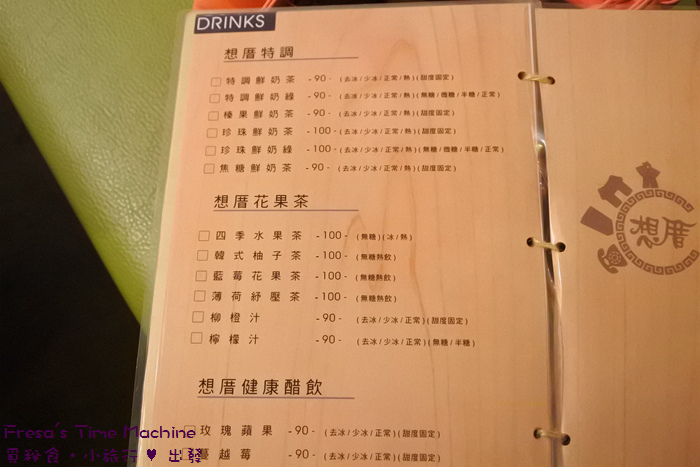 DRINKS
想厝特調
特調鮮奶茶 - 90 - (去冰/少冰/正常/熱)(甜度固定)
特調鮮奶綠 - 90 - (去冰/少冰/正常/熱)(無糖/微糖/半糖/正常)
榛果鮮奶茶 - 90 - (去冰/少冰/正常/熱)(甜度固定)
珍珠鮮奶茶 - 100 - (去冰/少冰/正常/熱)(甜度固定)
珍珠鮮奶綠 - 100 - (去冰/少冰/正常/熱)(無糖/微糖/半糖/正常)
焦糖鮮奶茶 - 90 - (去冰/少冰/正常/熱)(甜度固定)
想厝花果茶
四季水果茶 - 100 - (無糖)(冰/熱)
韓式柚子茶 - 100 - (無糖熱飲)
藍莓花果茶 - 100 - (無糖熱飲)
薄荷紓壓茶 - 100 - (無糖熱飲)
柳橙汁 - 90 - (去冰/少冰/正常)(甜度固定)
檸檬汁 - 90 - (去冰/少冰/正常)(無糖/半糖)
想厝健康醋飲
玫瑰蘋果 - 90 - (去冰/少冰/正常)(甜度固定)
蔓越莓 - 90 - (去冰/少冰/正常)(甜度固定)
想厝
Fresa's Time Machine
覓秘食・小旅行♥出發